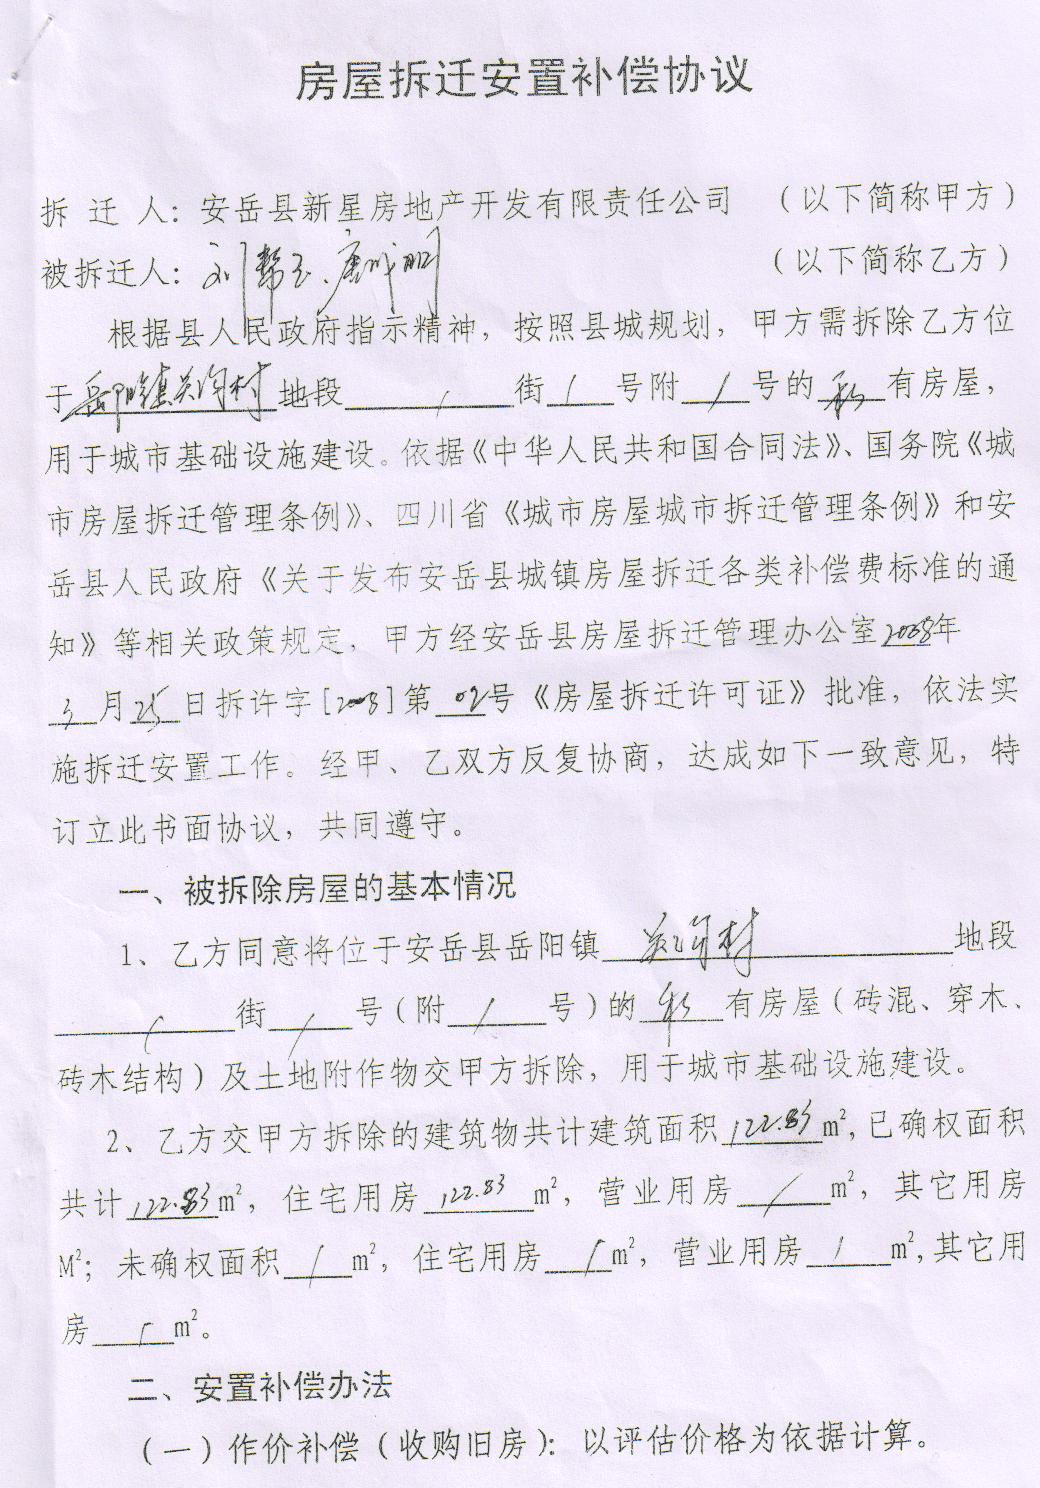 房屋拆迁安置补偿协议
拆 迁 人：安岳县新星房地产开发有限责任公司 （以下简称甲方）
被拆迁人：刘 （以下简称乙方）
根据县人民政府指示精神，按照县城规划，甲方需拆除乙方位
于岳阳镇关沟村地段 / 街 / 号附 / 号的 私 有房屋，
用于城市基础设施建设。依据《中华人民共和国合同法》、国务院《城
市房屋拆迁管理条例》、四川省《城市房屋城市拆迁管理条例》和安
岳县人民政府《关于发布安岳县城镇房屋拆迁各类补偿费标准的通
知》等相关政策规定，甲方经安岳县房屋拆迁管理办公室2008年
3月25日拆许字[2008]第 02号《房屋拆迁许可证》批准，依法实
施拆迁安置工作。经甲、乙双方反复协商，达成如下一致意见，特
订立此书面协议，共同遵守。
一、被拆除房屋的基本情况
1、乙方同意将位于安岳县岳阳镇 关沟村 地段
/ 街 / 号（附 / 号）的 私 有房屋（砖混、穿木、
砖木结构）及土地附作物交甲方拆除，用于城市基础设施建设。
2、乙方交甲方拆除的建筑物共计建筑面积 122.83 m²,已确权面积
共计 122.83 m²，住宅用房 122.83 m²，营业用房 / m²，其它用房
M²；未确权面积 / m²，住宅用房 / m²，营业用房 / m²,其它用
房 / m²。
二、安置补偿办法
（一）作价补偿（收购旧房）：以评估价格为依据计算。